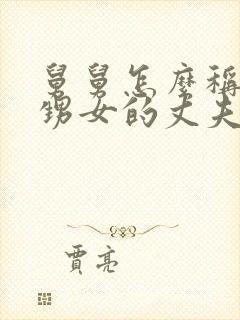 舅舅怎麼稱
甥女的丈夫
賈亮